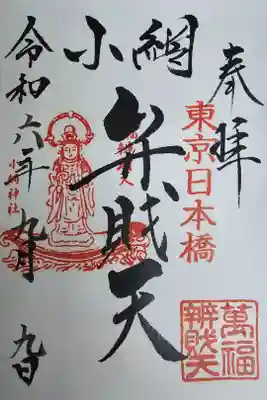 奉拝
東京日本橋
小網
弁財天
小網神社
令和六年九月九日
萬福
辨財天